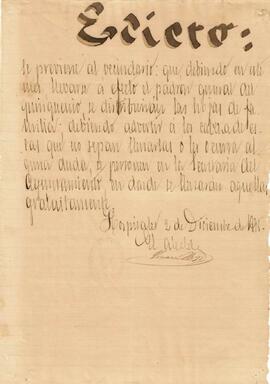 Edicto:
Se previene al vecindario que debiendo en este
mes llevarse a efecto el padron general del
quinquenio, se distribuiran las hojas de fa-
milia; debiendo advertir a los cabezas de es-
tas que no sepan llenarlas o les ocurra al-
guna duda, se personen en la Secretaria del
Ayuntamiento, en donde se llenarán aquellas
gratuitamente.
Hospitalet 2 de Diciembre de
El Alcalde